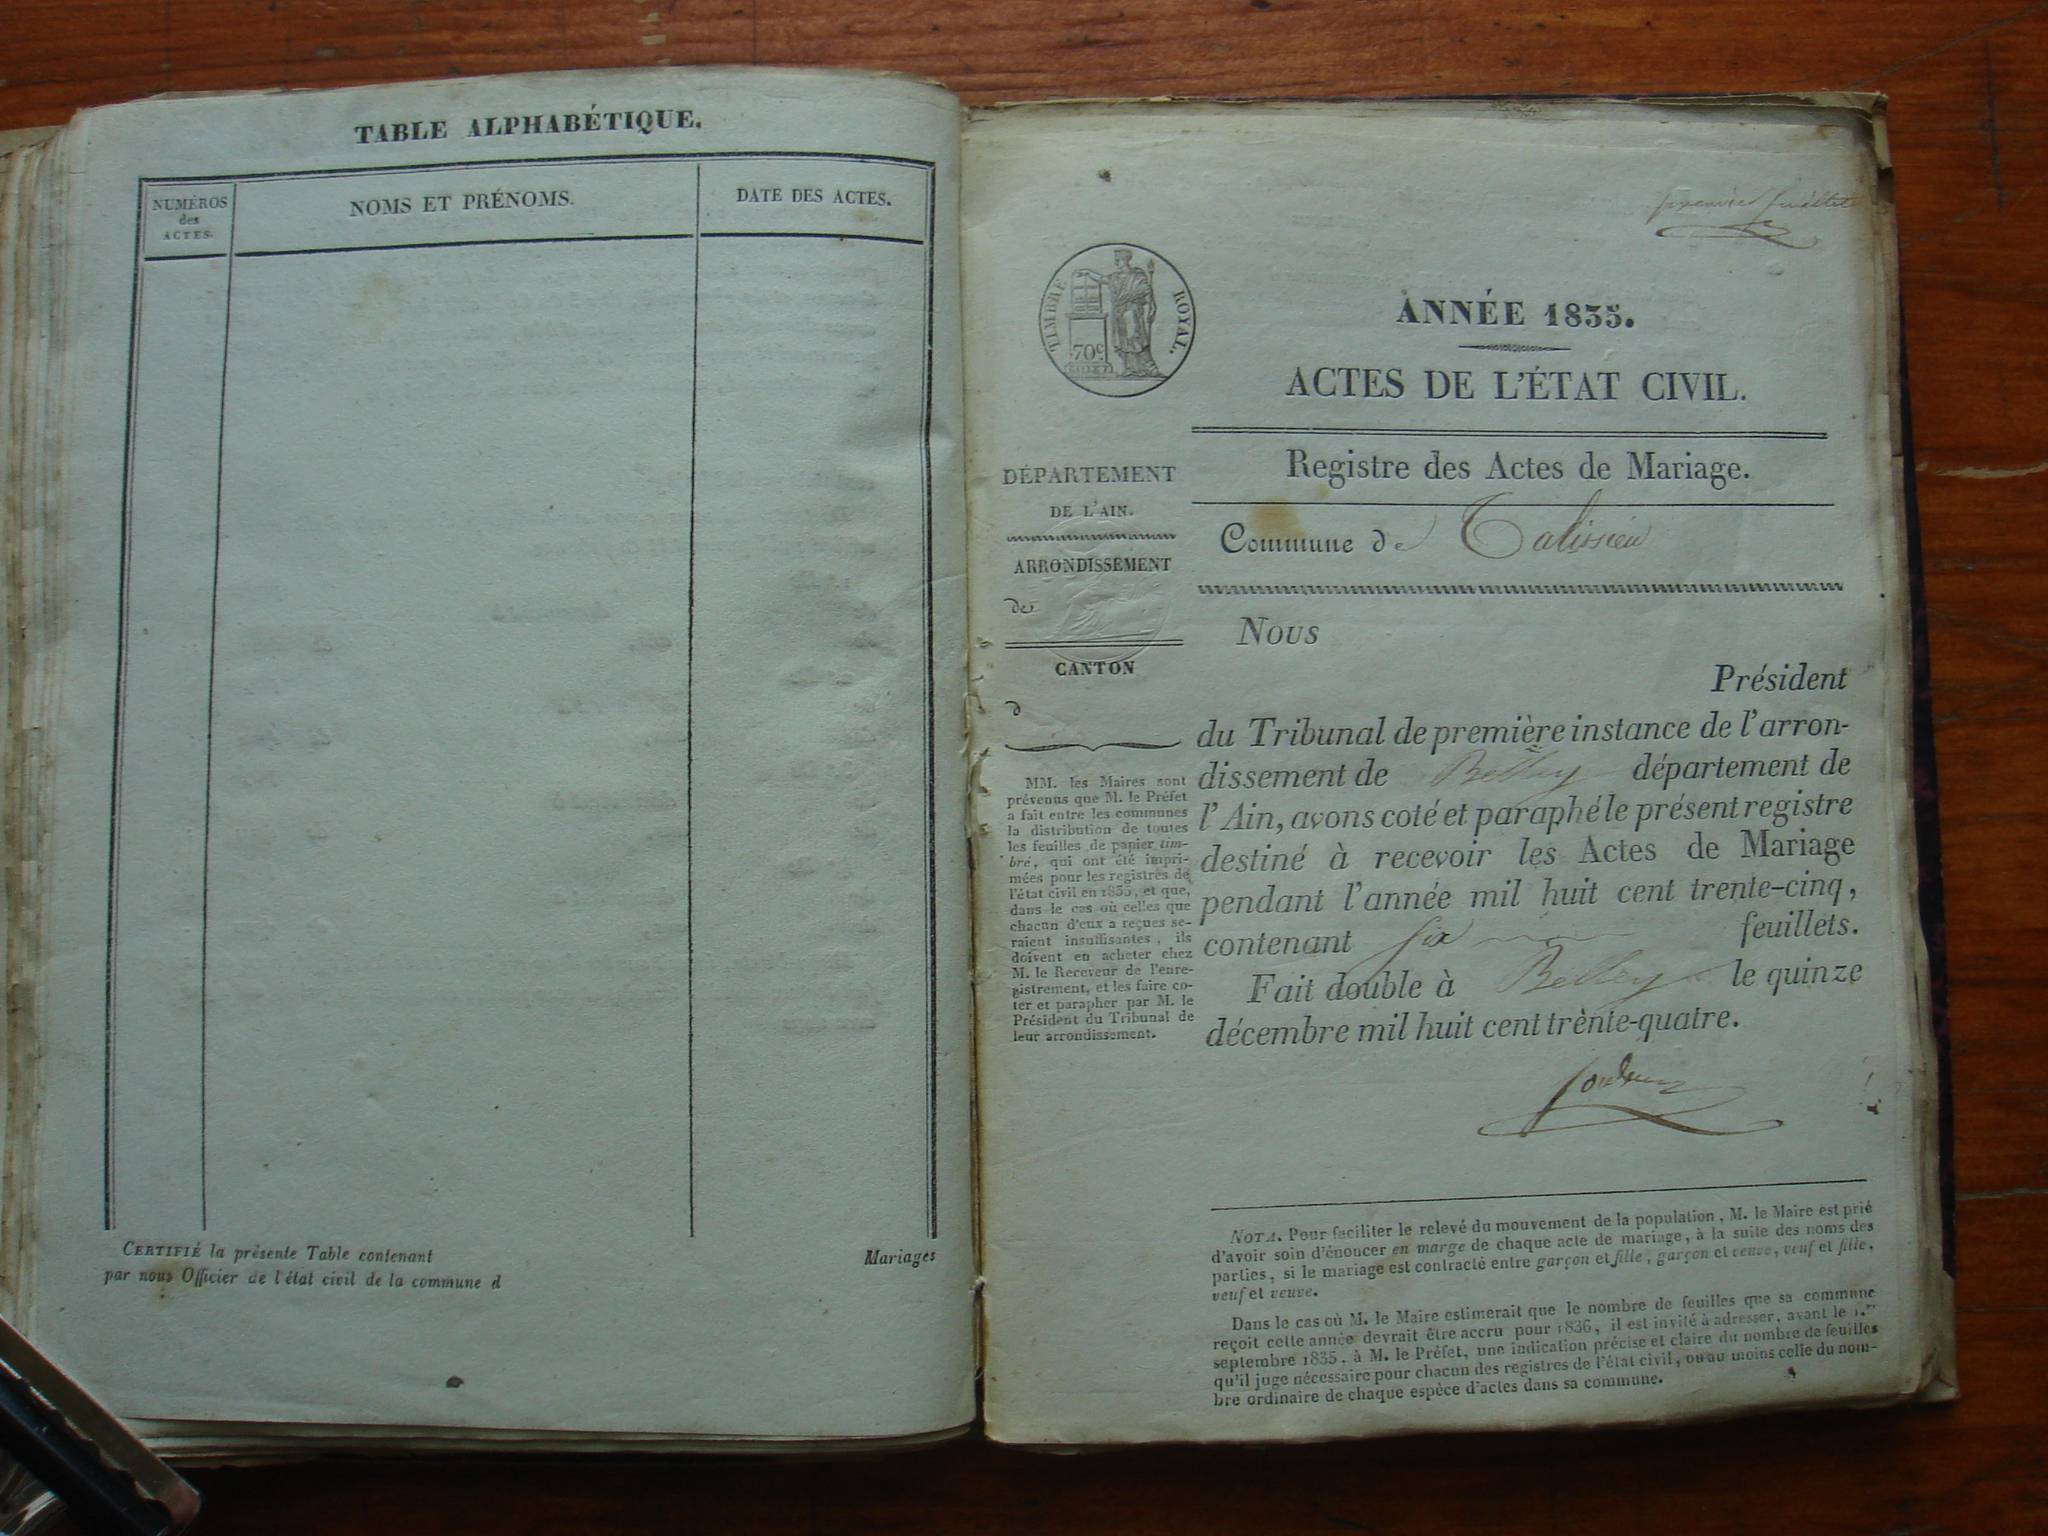 TABLE ALPHABÉTIQUE.
NUMÉROS
des
ACTES.
NOMS ET PRÉNOMS.
DATE DES ACTES.
CERTIFIÉ la présente Table contenant
Mariages
par nous Officier de l'état civil de la commune d
premier feuillet
TIMBRE ROYAL.
70c
ANNÉE 1835.
ACTES DE L'ÉTAT CIVIL.
DÉPARTEMENT
DE L'AIN.
ARRONDISSEMENT
de
CANTON
d
MM. les Maires sont
prévenus que M. le Préfet
a fait entre les communes
la distribution de toutes
les feuilles de papier tim-
bré, qui ont été impri-
mées pour les registres de
l'état civil en 1835, et que,
dans le cas où celles que
chacun d'eux a reçues se-
raient insuffisantes, ils
doivent en acheter chez
M. le Receveur de l'enre-
gistrement, et les faire co-
ter et parapher par M. le
Président du Tribunal de
leur arrondissement.
Registre des Actes de Mariage.
Commune de Talissieu
Nous
Président
du Tribunal de première instance de l'arron-
dissement de Belley département de
l'Ain, avons coté et paraphé le présent registre
destiné à recevoir les Actes de Mariage
pendant l'année mil huit cent trente-cinq,
contenant six feuillets.
Fait double à Belley le quinze
décembre mil huit cent trente-quatre.
NOTA. Pour faciliter le relevé du mouvement de la population, M. le Maire est prié
d'avoir soin d'énoncer en marge de chaque acte de mariage, à la suite des noms des
parties, si le mariage est contracté entre garçon et fille, garçon et veuve, veuf et fille,
veuf et veuve.
Dans le cas où M. le Maire estimerait que le nombre de feuilles que sa commune
reçoit cette année devrait être accru pour 1836, il est invité à adresser, avant le 1.er
septembre 1835, à M. le Préfet, une indication précise et claire du nombre de feuilles
qu'il juge nécessaire pour chacun des registres de l'état civil, ou au moins celle du nom-
bre ordinaire de chaque espèce d'actes dans sa commune.